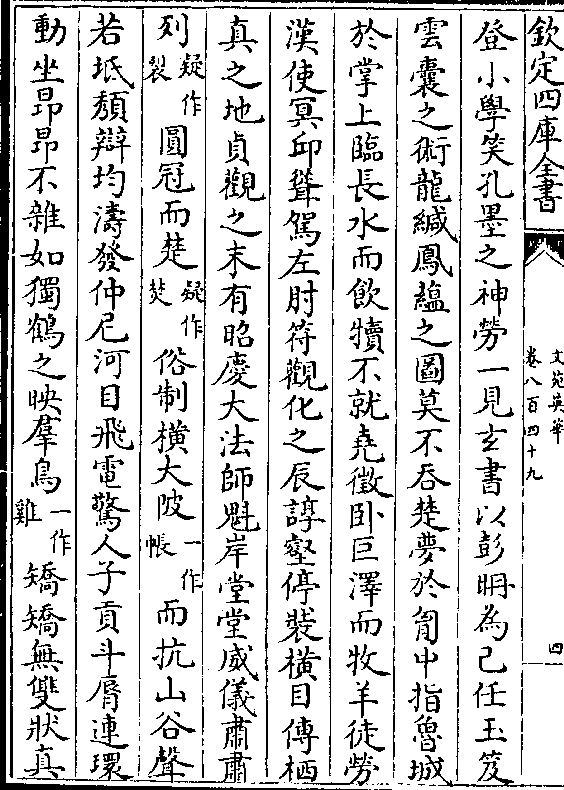 欽定四庫全書
文苑英華
卷八百四十九
四
登小學笑孔墨之神勞一見玄書以彭聃為己任玉笈
雲囊之術龍緘鳳蘊之圖莫不吞楚夢於胷中指魯城
於掌上臨長水而飲犢不就堯徵卧巨澤而牧羊徒勞
漢使冥邱聳駕左肘符觀化之辰諄壑停裝橫目傳栖
真之地貞觀之末有昭慶大法師魁岸堂堂威儀肅肅
列疑作裂圓冠而楚疑作焚俗制橫大陂一作帳而抗山谷聲
若坻頹辯均濤發仲尼河目飛電驚人子貢斗脣連環
動坐昂昂不雜如獨鶴之映羣鳥一作雞矯矯無雙狀真